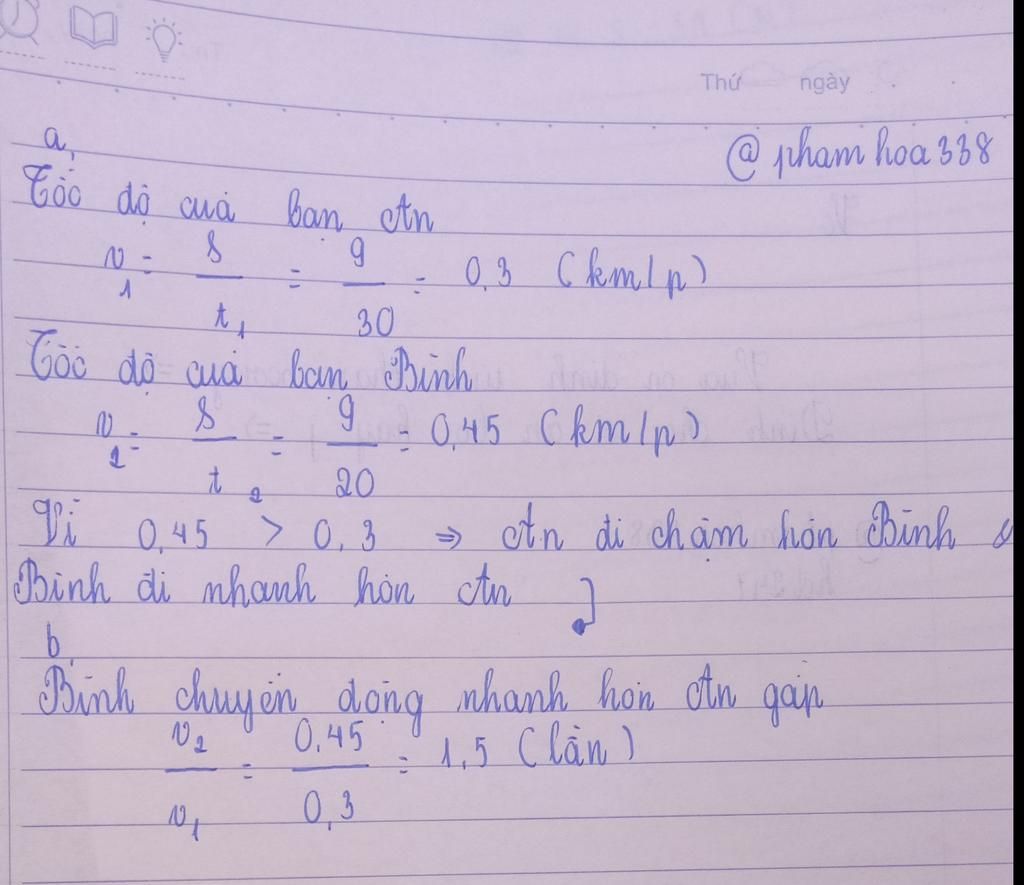 Thứ ngày
a,
@ phamhoa338
Tốc độ của bạn An
v₁ = s / t₁ = 9 / 30 = 0,3 (km/p)
Tốc độ của bạn Bình
v₂ = s / t₂ = 9 / 20 = 0,45 (km/p)
Vì 0,45 > 0,3 ⇒ An đi chậm hơn Bình
Bình đi nhanh hơn An ]
b,
Bình chuyển động nhanh hơn An gấp
v₂ / v₁ = 0,45 / 0,3 = 1,5 (lần)